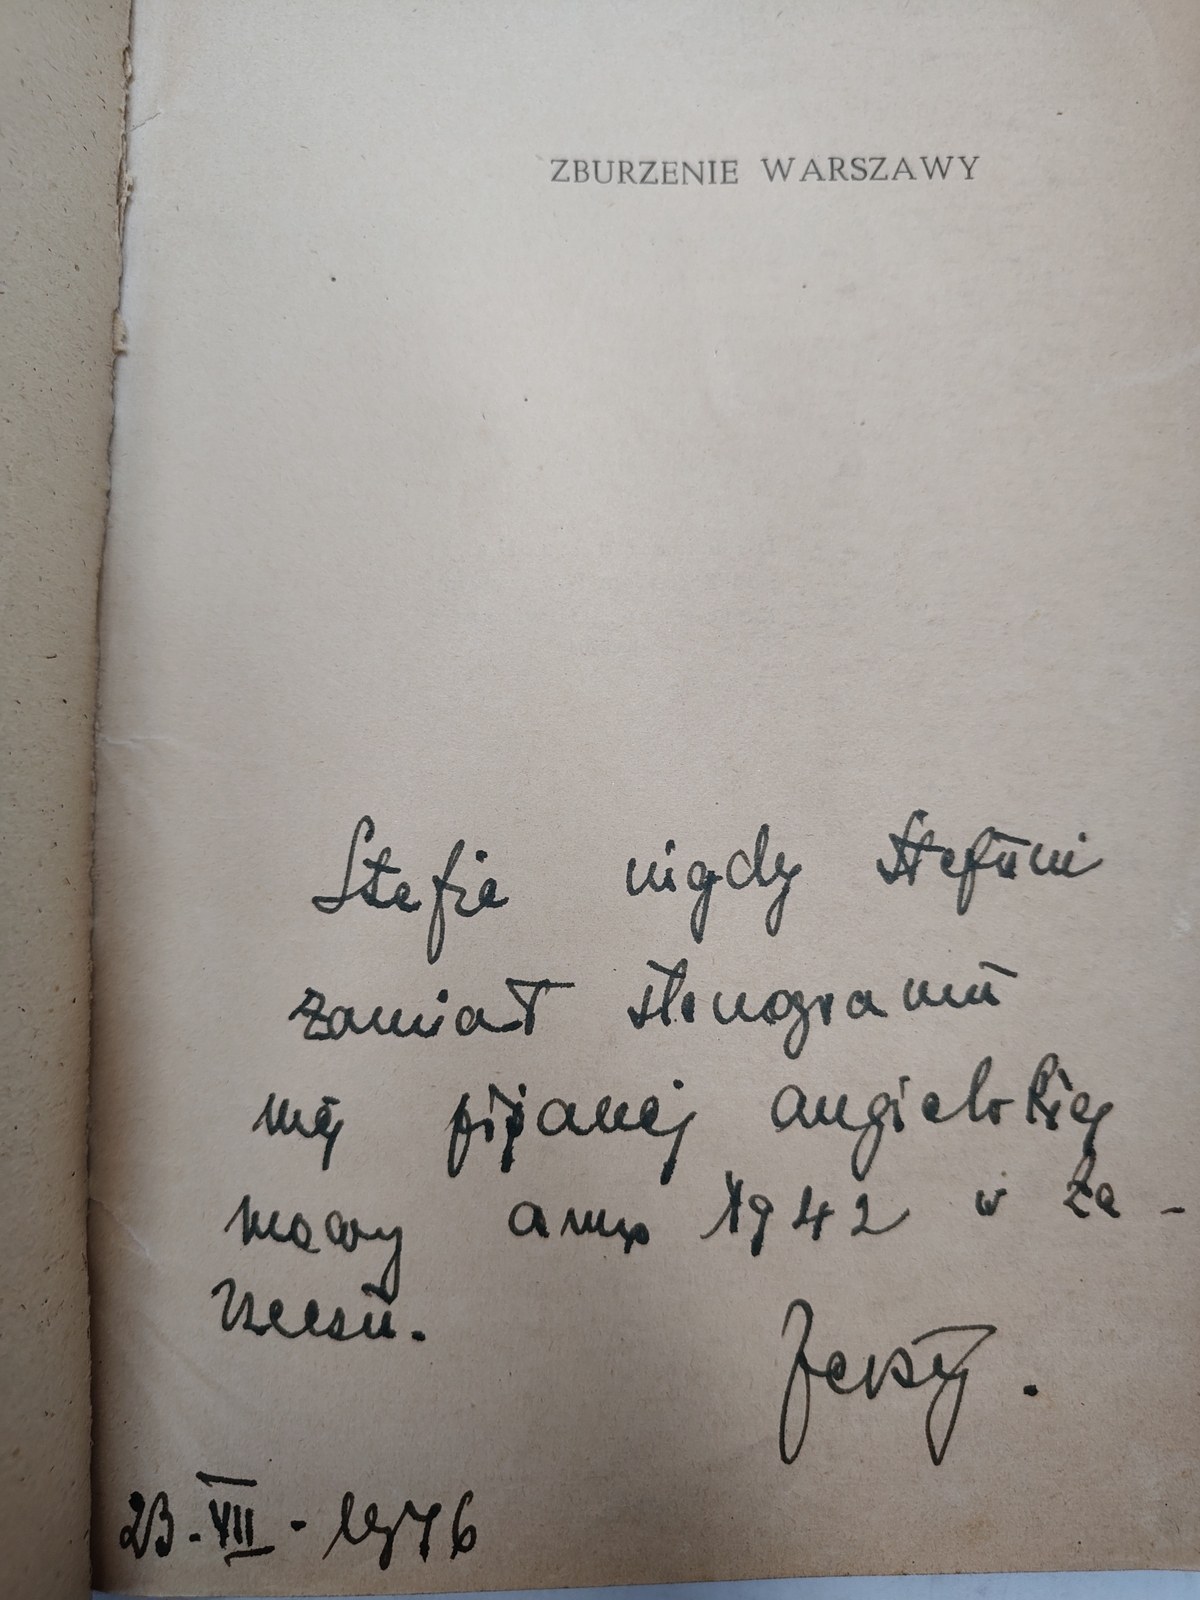 ZBURZENIE WARSZAWY
Stefie nigdy Stefuni
zamiat stenogramu
mej pijanej angielskiej
mowy 1942 w Za-
Jerzy.
23. VII - 1976